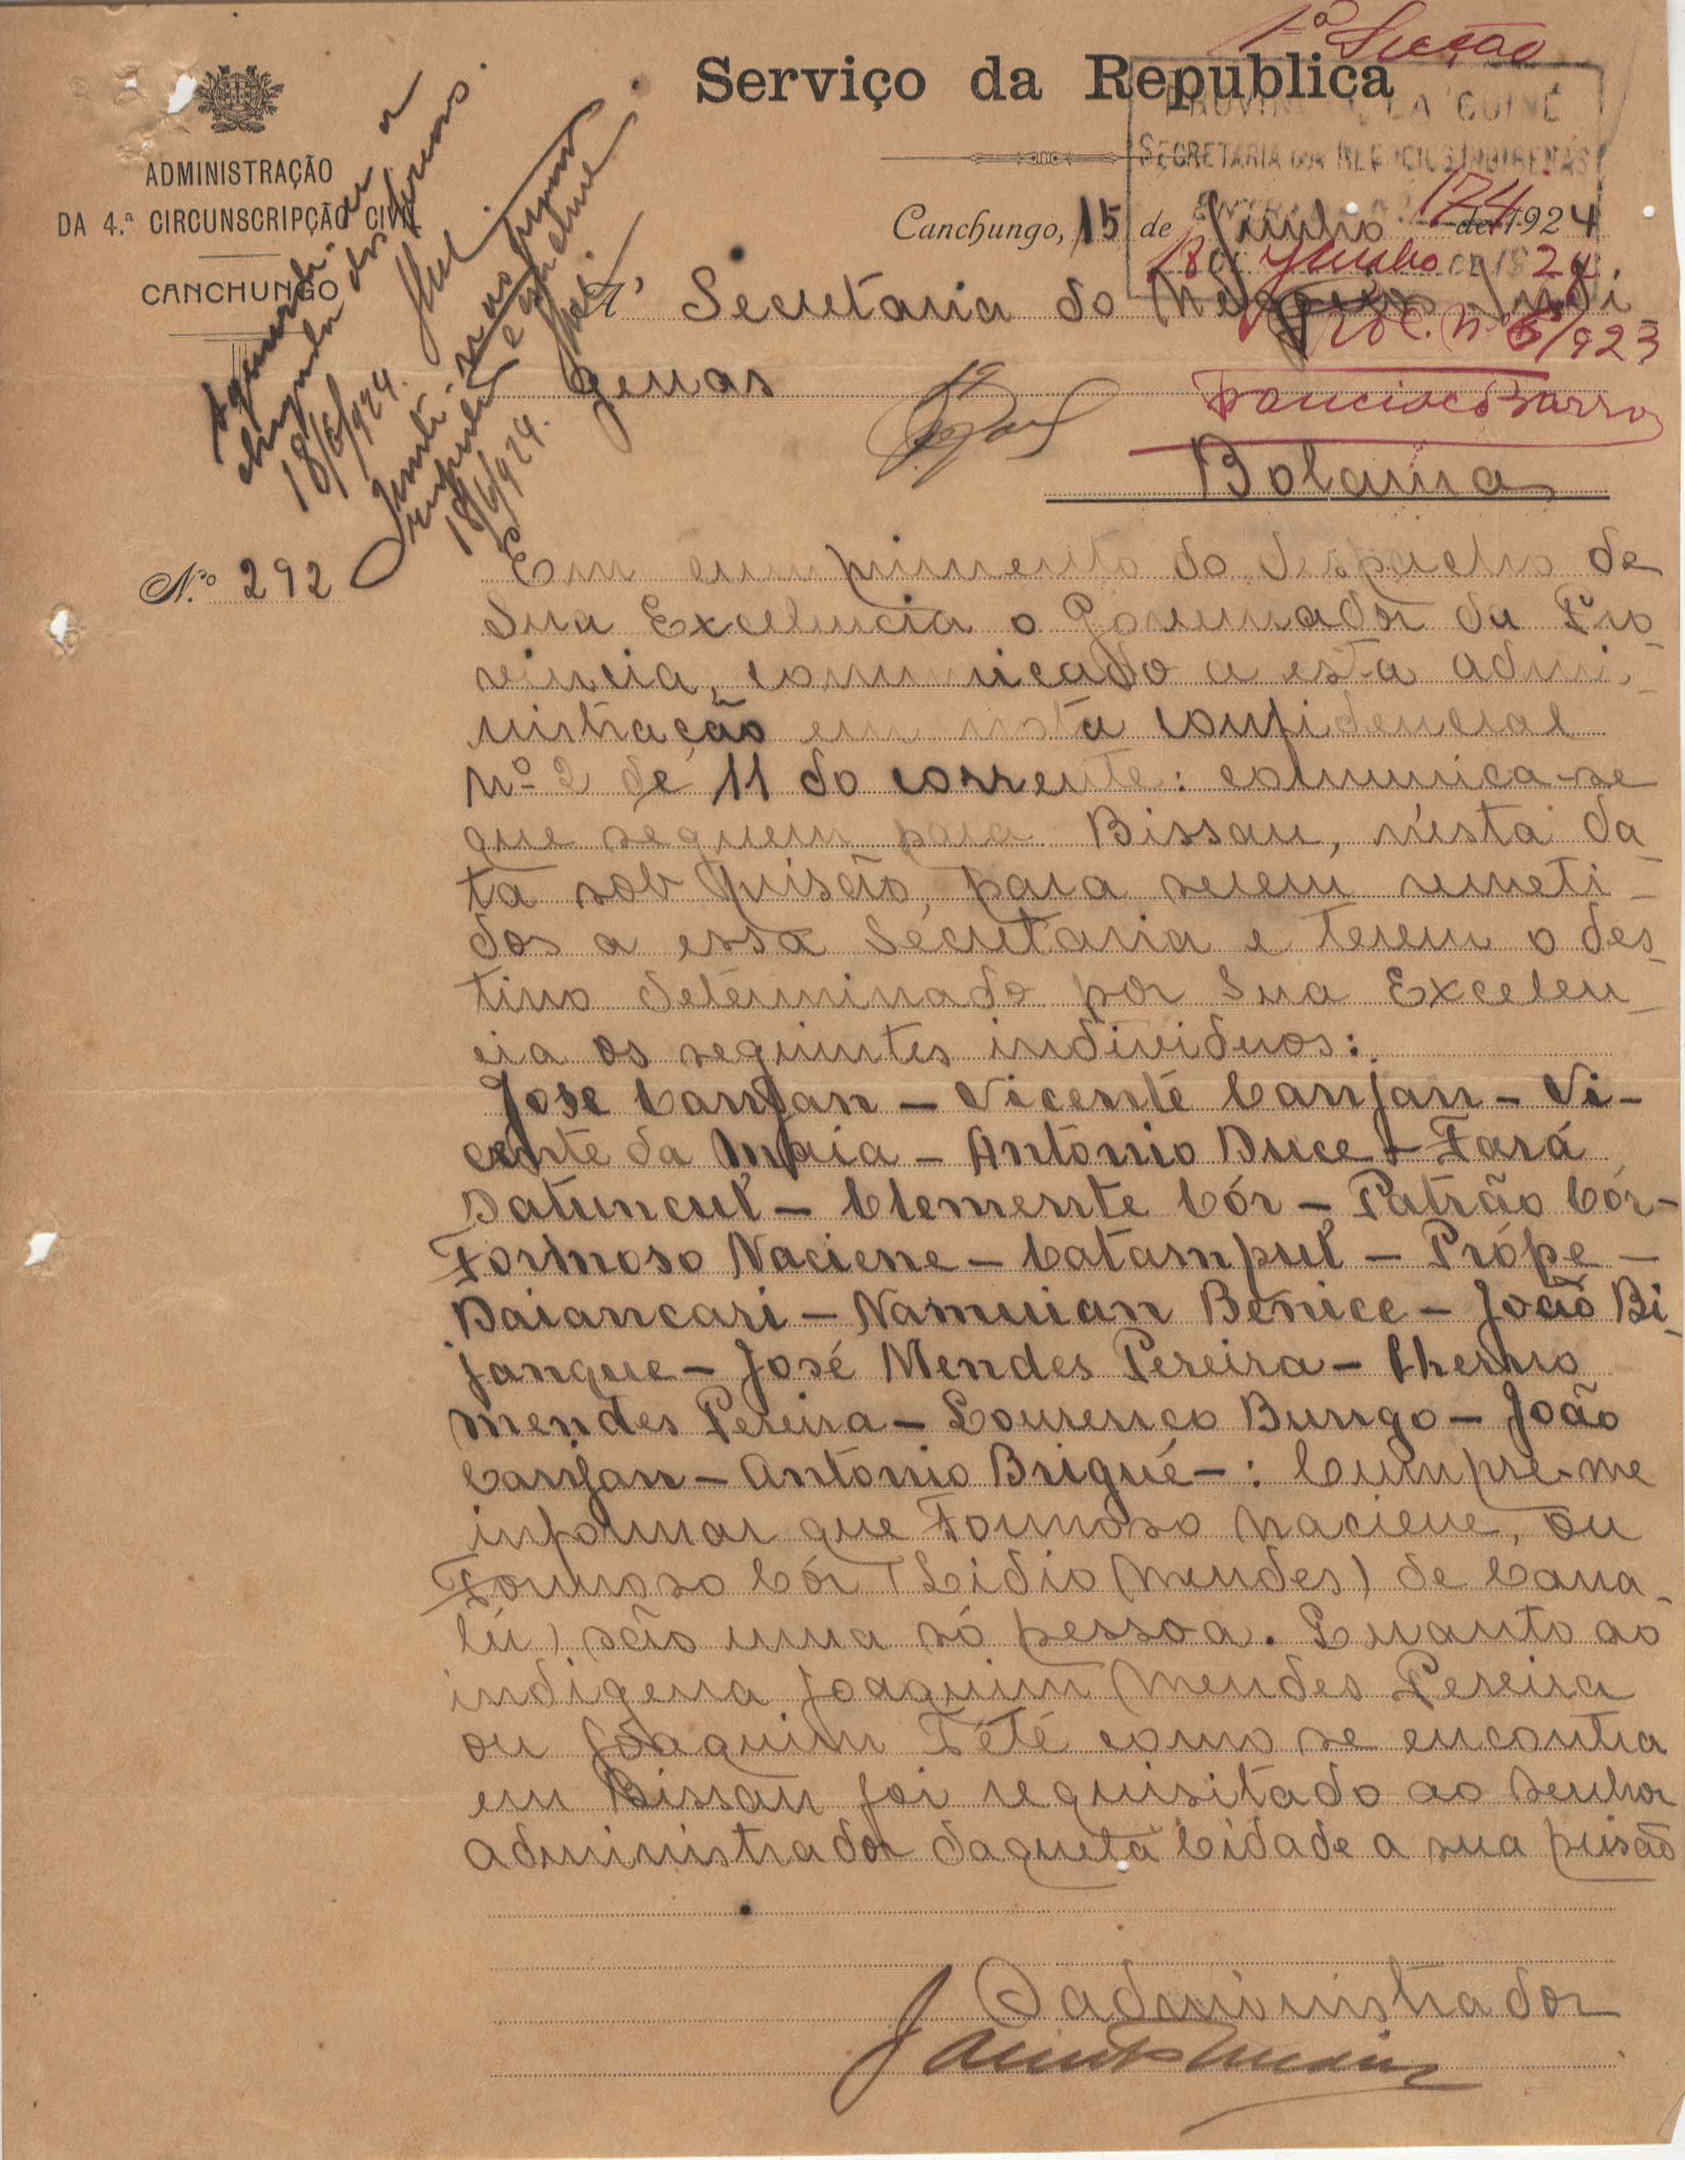 1ª Secção
Serviço da Republica
PROVINCIA DA GUINÉ
SECRETARIA DOS NEGOCIOS INDIGENAS
ADMINISTRAÇÃO
DA 4.ª CIRCUNSCRIPÇÃO CIVIL
CANCHUNGO
174
Canchungo, 15 de Junho de 1924
18 de Junho de 1924
Á Secretaria do Negocios Indi
genas
Proc. Nº 5/923
Francisco Barros
Bolama
Aguarde-se a
chegada dos presos.
18/6/924.
Junte-se ao
respectivo e
18/6/924.
N.º 292
Em cumprimento do despacho de
Sua Excelencia o Governador da Pro
vincia, comunicado a esta admi-
nistração em nota confidencial
nº 2 de 11 do corrente: comunica-se
que seguem para Bissau, n'esta da
ta sob prisão, para serem remeti-
dos a essa Secretaria e terem o des
tino determinado por Sua Excelen
cia os seguintes individuos:
Jose Canjan - Vicente Canjan - Vi-
cente da Maia - António Duce - Fará
Datuncul - Clemente Cór - Patrão Cór-
Formoso Naciene - Catampul - Própe -
Daiancari - Namuian Benice - João Bi
janque - José Mendes Pereira - Cherno
Mendes Pereira - Lourenco Bungo - João
Canjan - António Brigué -: Cumpre-me
informar que Formoso Naciene, ou
Formoso Cór (Lidio Mendes) de Cana-
lú) são uma só pessoa. Quanto ao
indigena Joaquim Mendes Pereira
ou Joaquim Tété como se encontra
em Bissau foi requisitado ao Senhor
administrador daquela Cidade a sua prisão
O administrador